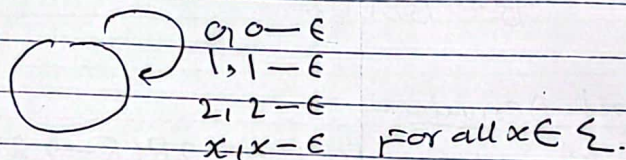 0, 0 — ϵ
1, 1 — ϵ
2, 2 — ϵ
x, x — ϵ For all x ∈ Σ.